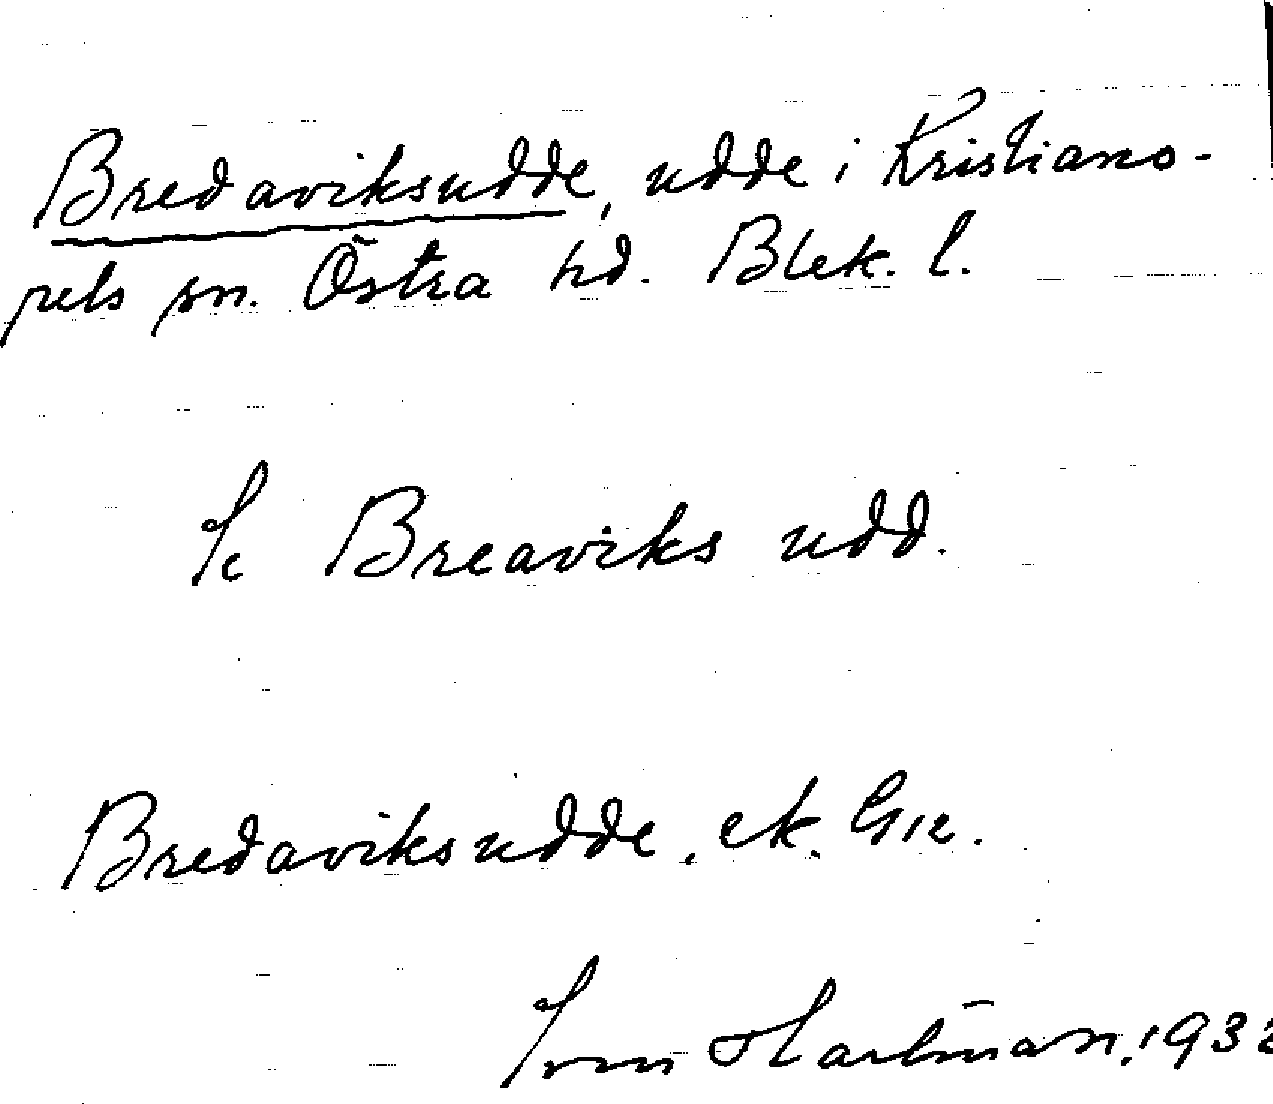 Bredaviksudde, udde i Kristiano-
pels sn. Östra hd. Blek. l.
Se Breaviks udd.
Bredaviksudde. ek.
Hartman. 1932